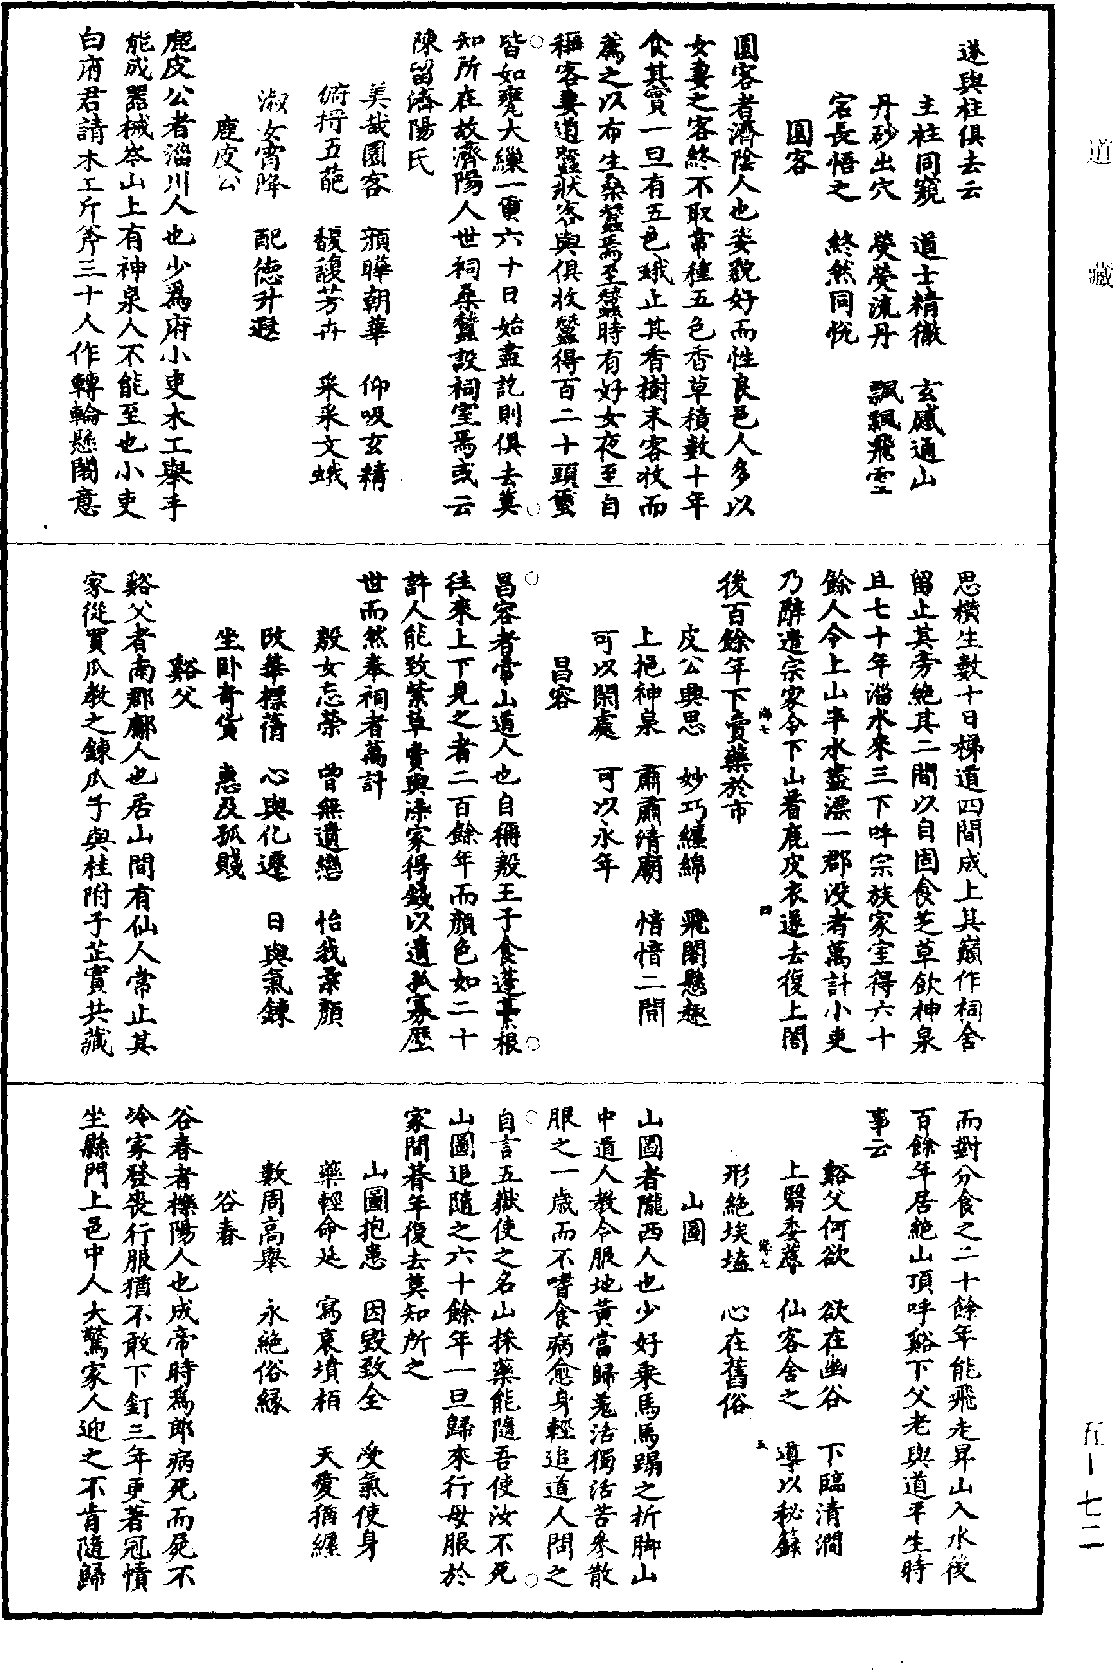 道藏
遂與柱俱去云
主柱同窺　道士精徹　玄感通山
丹砂出穴　熒熒流丹　飄飄飛雲
宕長悟之　終然同悅
園客
園客者濟陰人也姿貌好而性良邑人多以
女妻之客終不取常種五色香草積數十年
食其實一旦有五色蛾止其香樹末客收而
薦之以布生桑蠶焉至蠶時有好女夜至自
稱客妻道蠶狀客與俱收蠶得百二十頭蠒
皆如甕大繅一蠒六十日始盡訖則俱去莫
知所在故濟陽人世祠桑蠶設祠室焉或云
陳留濟陽氏
美哉園客　頮曄朝華　仰吸玄精
俯捋五葩　馥馥芳卉　采采文蛾
淑女宵降　配德升遐
鹿皮公
鹿皮公者淄川人也少為府小吏木工舉手
能成器械岑山上有神泉人不能至也小吏
白府君請木工斤斧三十人作轉輪懸閣意
思橫生數十日梯道四間成上其巔作祠舍
留止其旁絶其二間以自固食芝草飲神泉
且七十年淄水來三下呼宗族家室得六十
餘人令上山半水盡漂一郡没者萬計小吏
乃辭遣宗家令下山著鹿皮衣遂去復上閣
後百餘年下賣藥於市
皮公興思　妙巧纏綿　飛閣懸趣
上挹神泉　肅肅清廟　愔愔二間
可以閑處　可以永年
昌容
昌容者常山道人也自稱殷王子食蓬虆根
往來上下見之者二百餘年而顔色如二十
許人能致紫草賣與染家得錢以遺孤寡歷
世而然奉祠者萬計
殷女忘榮　曾無遺戀　怡我柔顔
改華標蒨　心與化遷　日與氣鍊
坐卧奇貨　惠及孤賤
谿父
谿父者南郡鄘人也居山間有仙人常止其
家從買瓜教之鍊瓜子與桂附子芷實共藏
而對分食之二十餘年能飛走昇山入水後
百餘年居絶山頂呼谿下父老與道平生時
事云
谿父何欲　欲在幽谷　下臨清澗
上翳委蓽　仙客舍之　導以秘籙
形絶埃𡏖　心在舊俗
山圖
山圖者隴西人也少好乘馬馬蹋之折脚山
中道人教令服地黄當歸羌活獨活苦參散
服之一歲而不嗜食病愈身輕追道人問之
自言五嶽使之名山採藥能隨吾使汝不死
山圖追隨之六十餘年一旦歸來行母服於
家間朞年復去莫知所之
山圖抱患　因毀致全　受氣使身
藥輕命延　寫哀墳柏　天愛猶纏
數周高舉　永絶俗緣
谷春
谷春者櫟陽人也成帝時為郎病死而屍不
冷家發喪行服猶不敢下釘三年更著冠幘
坐縣門上邑中人大驚家人迎之不肯隨歸
五－七二